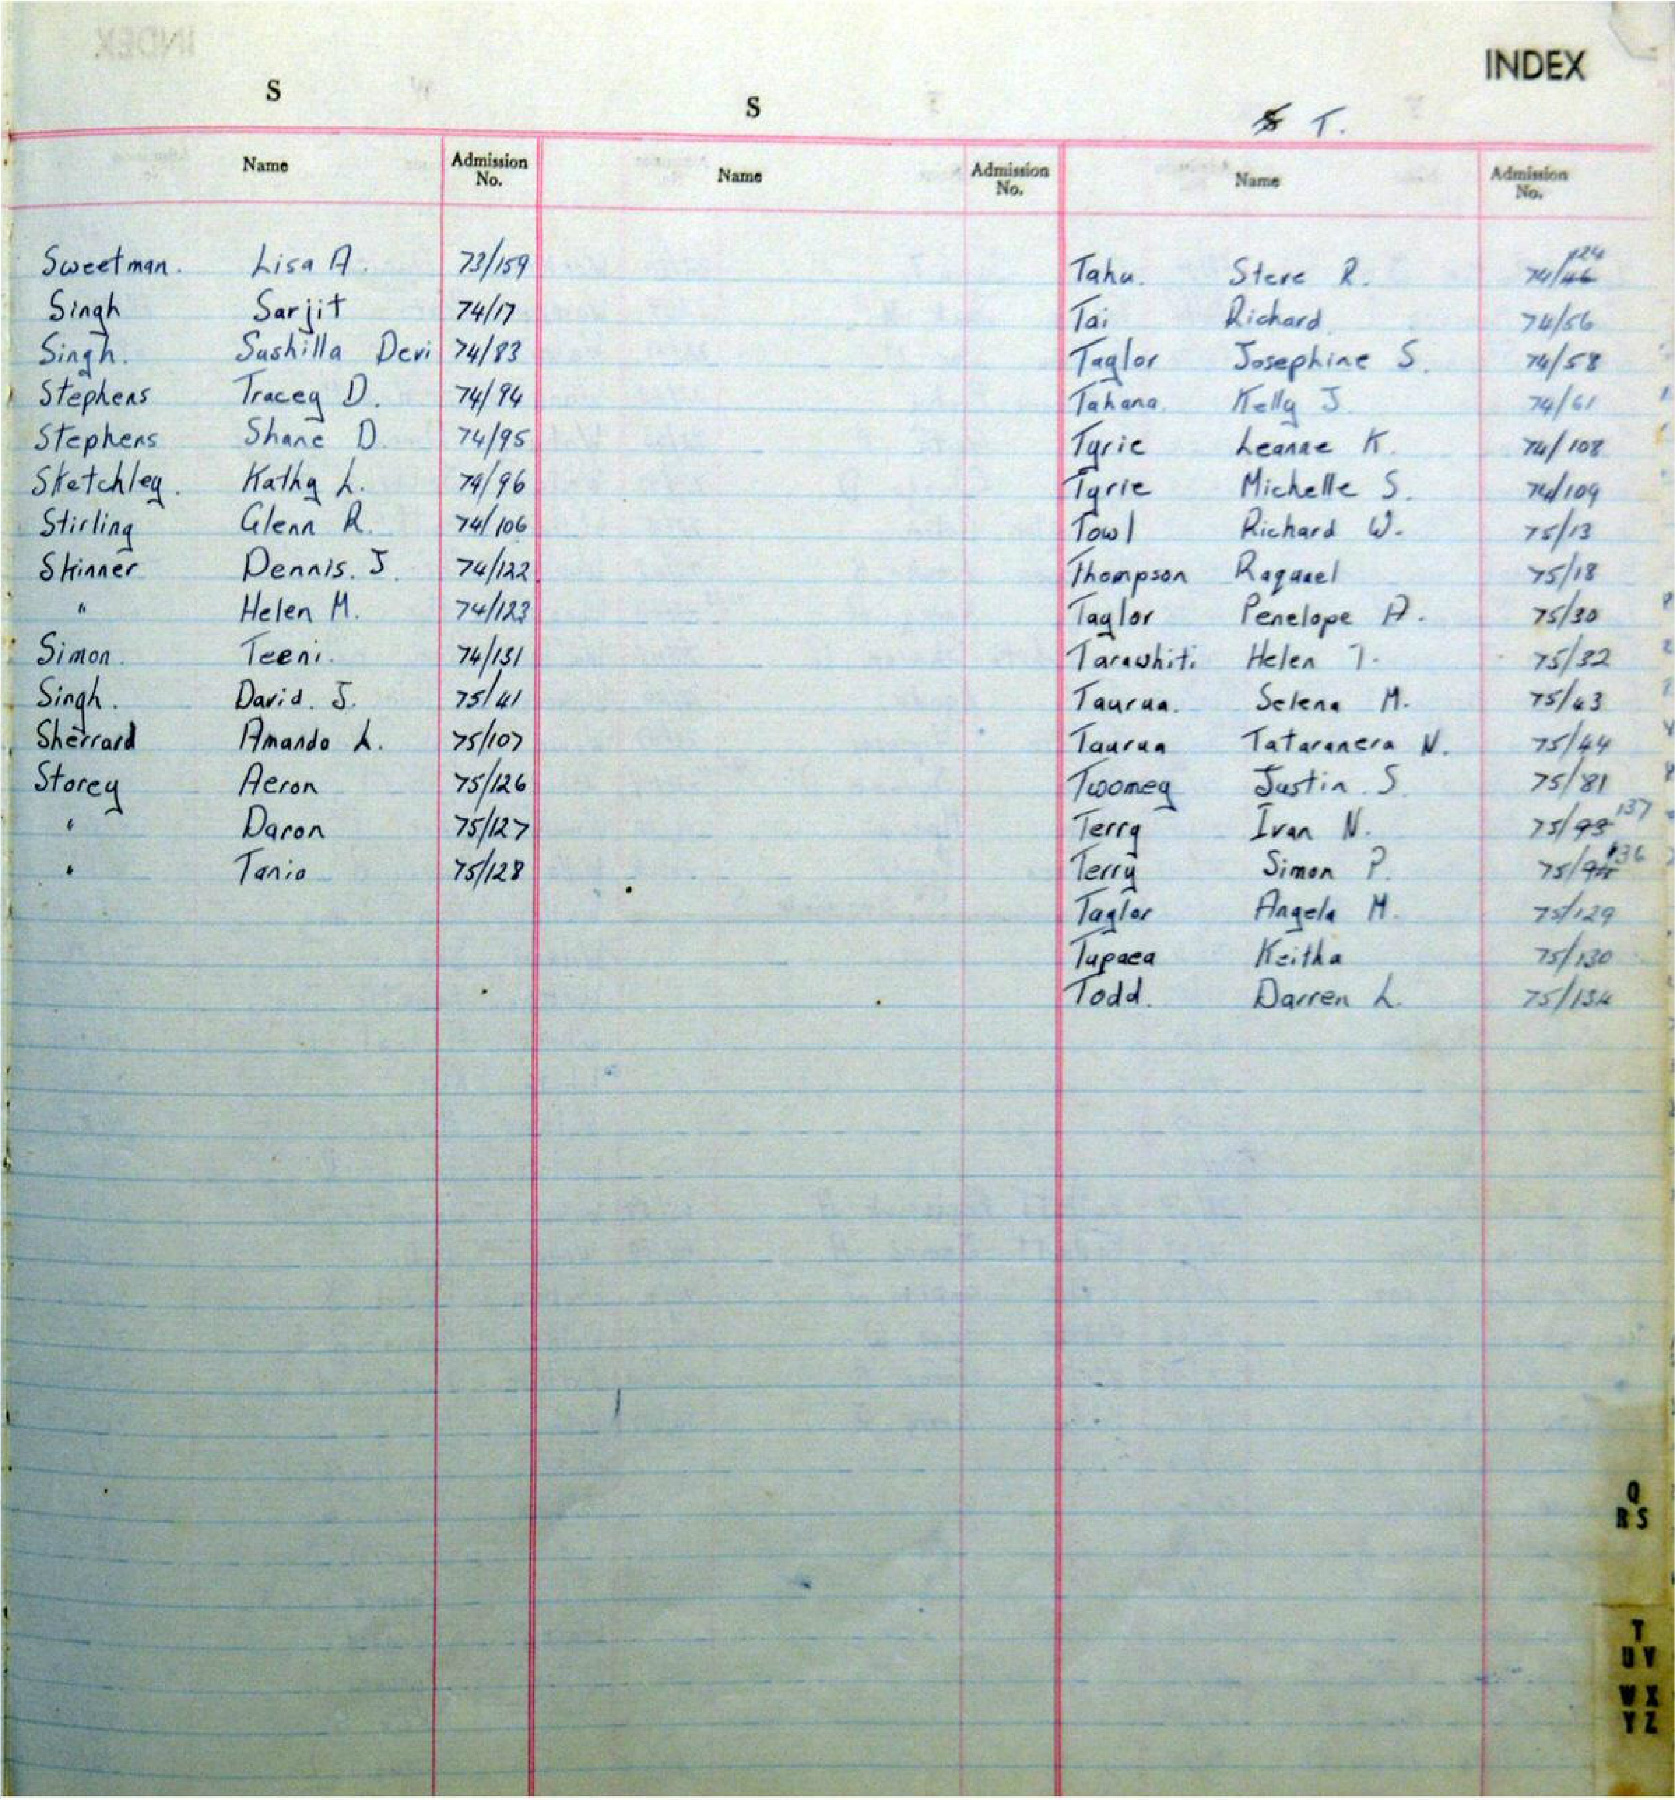 INDEX
S
S
T.
Name Admission No.
Name Admission No.
Name Admission No.
Sweetman. Lisa A. 73/159
Singh Sarjit 74/17
Singh. Sushilla Devi 74/83
Stephens Tracey D. 74/94
Stephens Shane D. 74/95
Sketchley. Kathy L. 74/96
Stirling Glenn R. 74/106
Skinner Dennis. J. 74/122
" Helen M. 74/123
Simon. Teeni. 74/131
Singh. David. J. 75/41
Sherrard Amanda L. 75/107
Storey Aeron 75/126
" Daron 75/127
" Tania 75/128
Tahu. Steve R. 74/46 124
Tai Richard 74/56
Taylor Josephine S. 74/58
Tahana. Kelly J. 74/61
Tyrie Leanne K. 74/108
Tyrie Michelle S. 74/109
Towl Richard W. 75/13
Thompson Raquael 75/18
Taylor Penelope A. 75/30
Tarawhiti Helen T. 75/32
Taurua. Selena M. 75/43
Taurua Tataranera N. 75/44
Twomey Justin S. 75/81
Terry Ivan N. 75/93 137
Terry Simon P. 75/94 136
Taylor Angela M. 75/129
Tupaea Keitha 75/130
Todd. Darren L. 75/134
Q
R S
T
U V
W X
Y Z